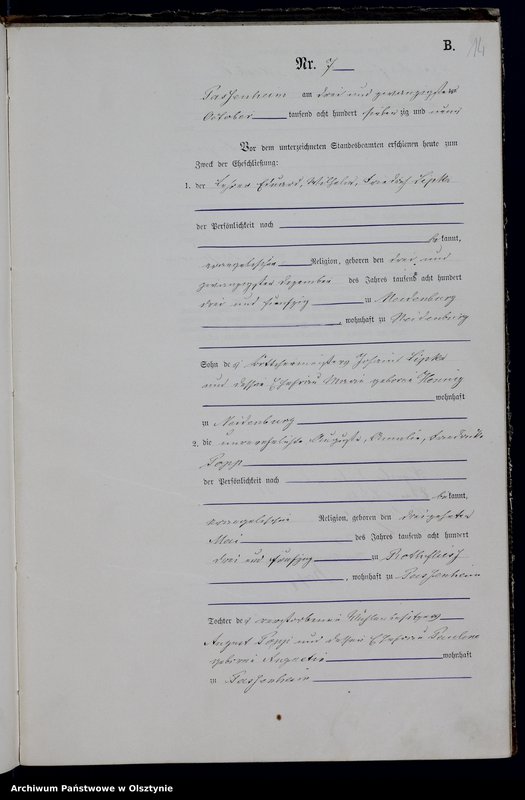 B.
14
Nr. 7
Passenheim am drei und zwanzigsten
October tausend acht hundert sieben zig und neun
Vor dem unterzeichneten Standesbeamten erschienen heute zum
Zweck der Eheschließung:
1. der Eduard, Wilhelm, Friedrich Lipka
der Persönlichkeit nach
be kannt,
evangelischer Religion, geboren den drei und
zwanzigsten Dezember des Jahres tausend acht hundert
drei und fünfzig zu Neidenburg
, wohnhaft zu Neidenburg
Sohn des Böttchermeisters Johann Lipka
und dessen Ehefrau Marie geborene
wohnhaft
zu Neidenburg
2. die unverehelichte Auguste, Amalie, Friederike
Popp
der Persönlichkeit nach
be kannt,
evangelischer Religion, geboren den dreizehnten
Mai des Jahres tausend acht hundert
drei und fünfzig zu
, wohnhaft zu Passenheim
Tochter des verstorbenen Mühlenbesitzers
August Popp und dessen Ehefrau Pauline
geborene
wohnhaft
zu Passenheim
Archiwum Państwowe w Olsztynie